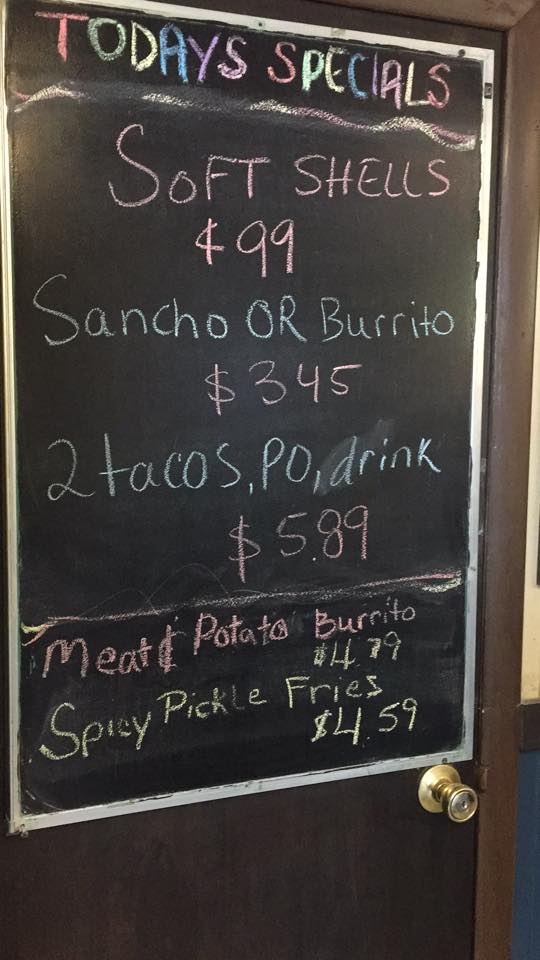 TODAYS SPECIALS
SOFT SHELLS
¢99
Sancho OR Burrito
$345
2 tacos, PO, drink
$5.89
Meat & Potato Burrito
$4.79
Spicy Pickle Fries
$4.59